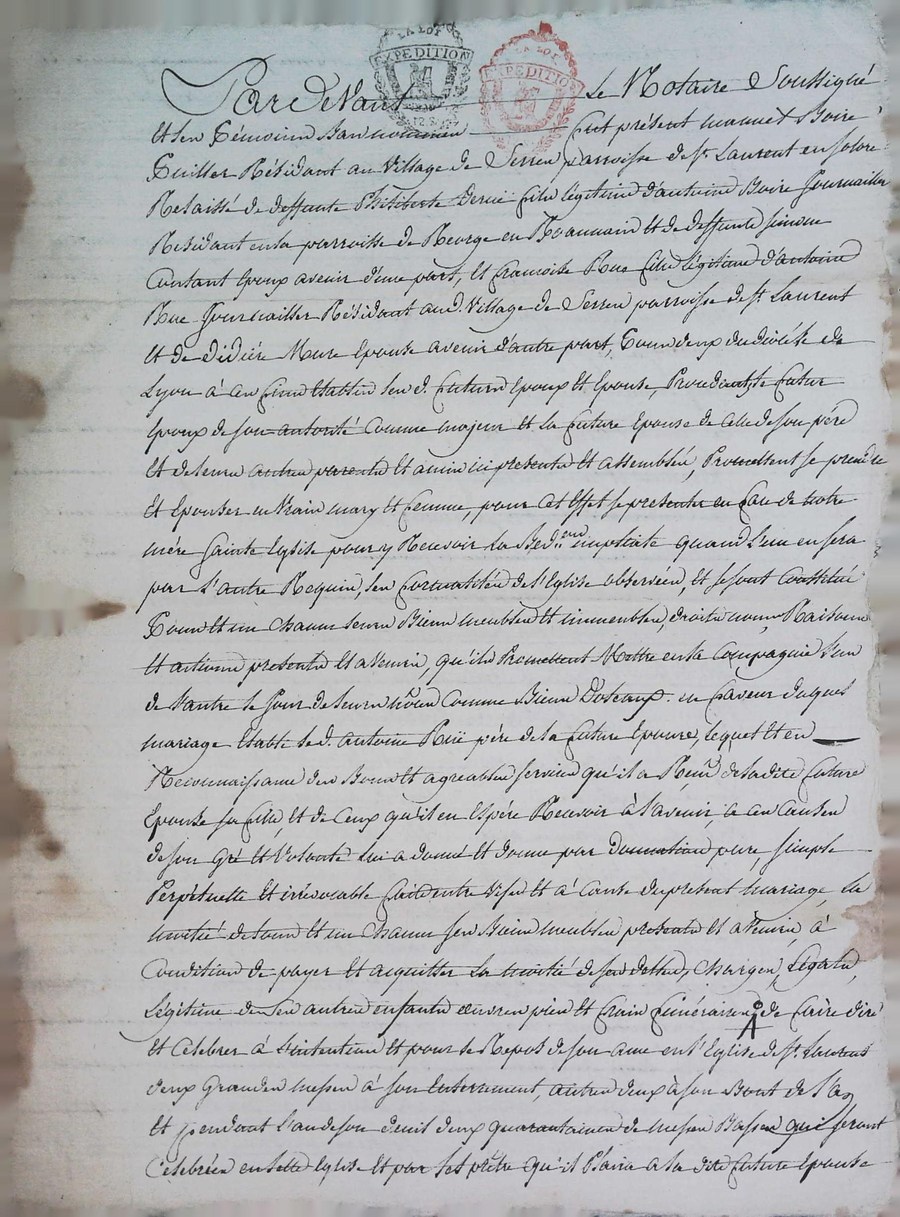 LA LOI
EXPEDITION
LA LOI
EXPEDITION
Pardevant le Notaire Soussigné
et les témoins bas nommés fut présent manuel Boire
Tuillier Résidant au Village de Serres parroisse de St. Laurent en
Relaissé de deffunte Philiberte fils légitime d'antoine Boire Journaillier
Residant en la parroisse de en et de deffunte simone
Contant Epoux avenir d'une part, et francoise Rue fille légitime d'antoine
Rue Journaillier Résidant aud. Village de Serres parroisse de St. Laurent
et de didiére Mure Epouse avenir d'autre part, Tous deux du diocése de
Lyon à ces fins Etablis les d. futurs Epoux et Epouse, Procedants, le futur
Epoux de son autorité Comme majeur et la future Epouse de celle de son pére
et de leurs autres parents et amis ici presents et assemblés, Promettent se prendre
et Epouser en vrais mary et femme, pour cet Effet se presenter en face de notre
mére Sainte Eglise pour y Recevoir La Bed.on nuptiale quand l'un en sera
par l'autre Requis, les formalités de l'Eglise observées, et se sont Constitué
Tous et un chacun leurs Biens meubles et immeubles, droits noms Raisons
et actions presents et avenir, qu'ils Promettent Mettre en la Compagnie l'un
de l'autre le Jour de leurs noces Comme Biens Dotaux. en faveur duquel
mariage Etabli led. antoine Rüe pére de la future Epouse, lequel et en
Reconnaissance des Bons et agreables services qu'il a Reçus de la dite future
Epouse sa fille, et de ceux qu'il en Espére Recevoir à l'avenir, a ces Causes
de son gré et Volonté lui a donné et donne par Donnation pure simple
Perpétuelle et irrévocable faite entre vifs et à Cause du présent mariage, la
moitié de tous et un chacun ses Biens meubles presents et avenir, à
Condition de payer et acquitter la moitié de ses dettes, charges, Légats,
Légitime de ses autres enfants œuvres pies et frais funéraires, de faire dire
et Celebrer à l'intention et pour le Repos de son ame en l'Eglise de St. Laurent
deux grandes messes à son Enterrement, autres deux à son Bout de l'an
et pendant l'an de son deuil deux quarantaines de messes Basses qui seront
Celebrées en telle Eglise et par tel prêtre qu'il Plaira a la dite future Epouse